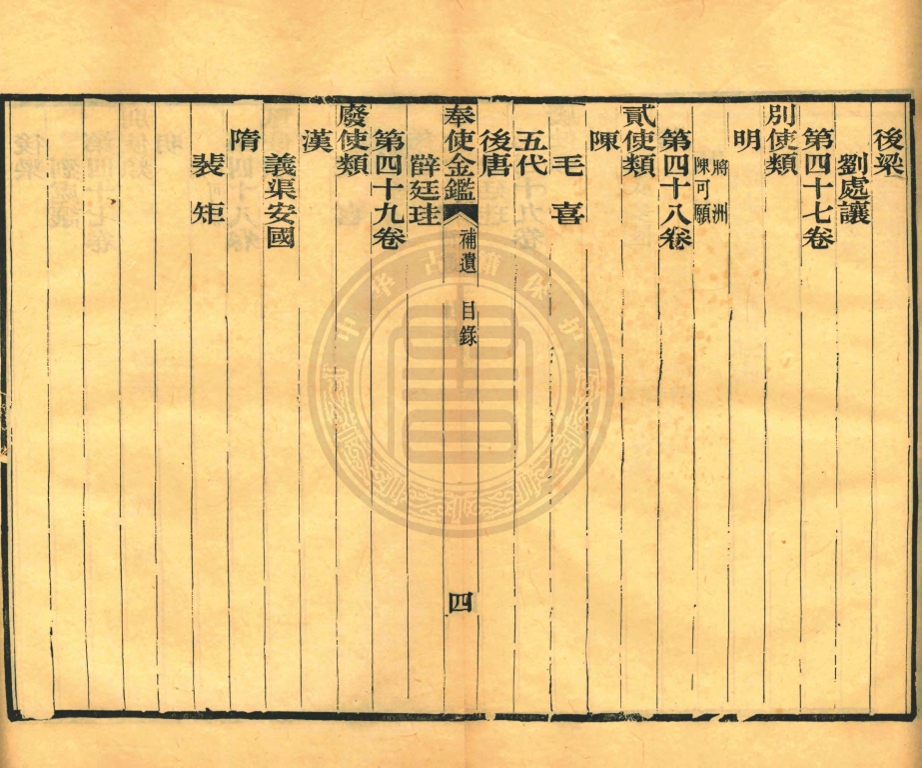 後梁
劉處讓
第四十七卷
別使類
明
將洲
陳可願
第四十八卷
貳使類
陳
毛喜
五代
後唐
奉使金鑑 補遺 目錄 四
薛廷珪
第四十九卷
廢使類
漢
義渠安國
隋
裴矩